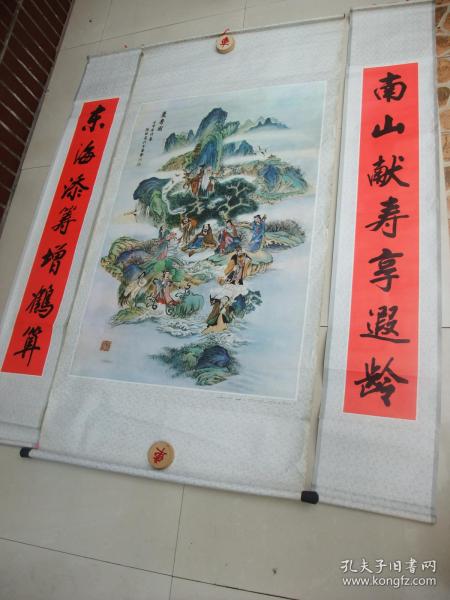 南山献寿享遐龄
东海添筹增鹤算
孔夫子旧书网
www.kongfz.com